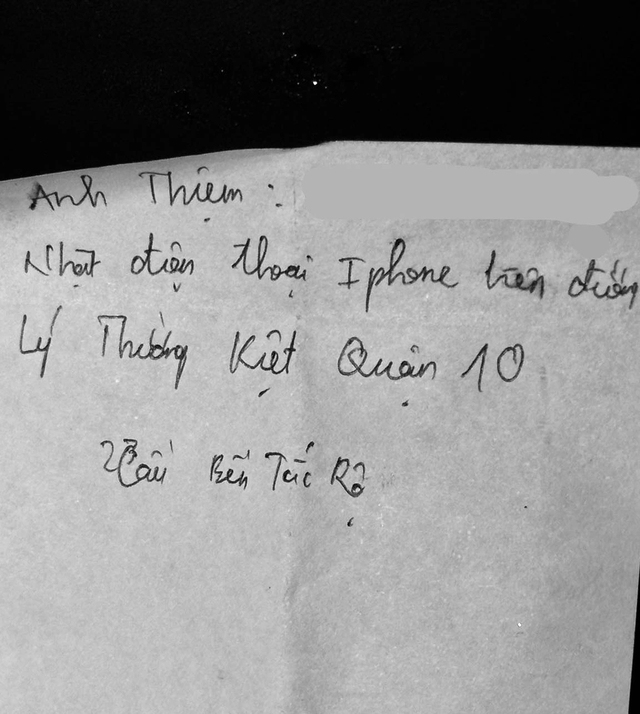 Anh Thiệm :
Nhặt điện thoại Iphone trên đường
Lý Thường Kiệt Quận 10
Cầu Bến Tắc Rỗ